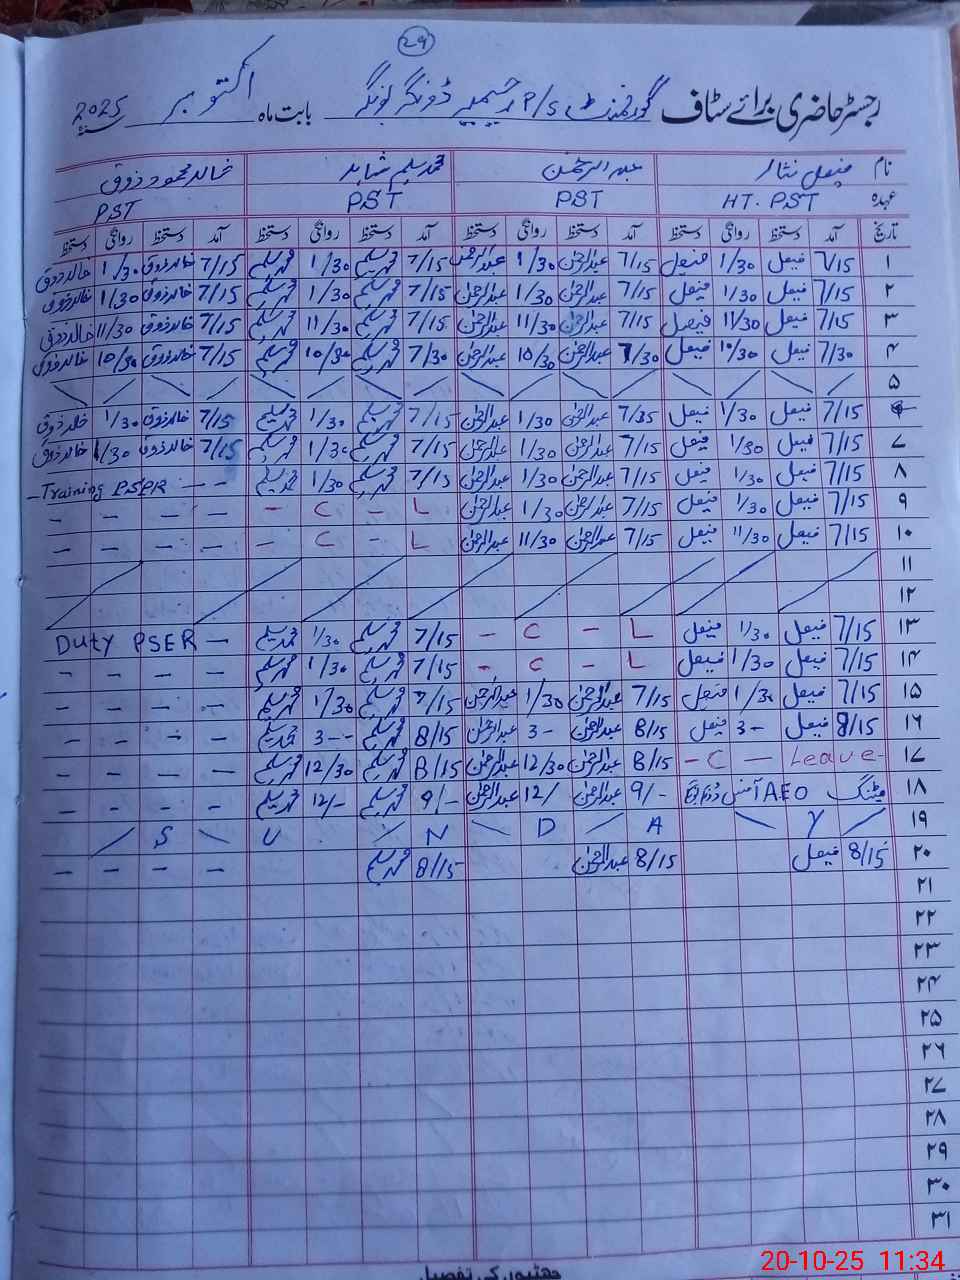 29
رجسٹر حاضری برائے سٹاف گورنمنٹ P/S بابت ماہ اکتوبر 2025
نام فیصل نثار عبدالرحمٰن محمد سلیم شاہد خالد محمود ذوق
عہدہ HT. PST PST PST PST
تاریخ آمد دستخط روانگی دستخط آمد دستخط روانگی دستخط آمد دستخط روانگی دستخط آمد دستخط روانگی دستخط
۱ 7/15 فیصل 1/30 فیصل 7/15 عبدالرحمٰن 1/30 عبدالرحمٰن 7/15 محمد سلیم 1/30 محمد سلیم 7/15 خالد ذوق 1/30 خالد ذوق
۲ 7/15 فیصل 1/30 فیصل 7/15 عبدالرحمٰن 1/30 عبدالرحمٰن 7/15 محمد سلیم 1/30 محمد سلیم 7/15 خالد ذوق 1/30 خالد ذوق
۳ 7/15 فیصل 11/30 فیصل 7/15 عبدالرحمٰن 11/30 عبدالرحمٰن 7/15 محمد سلیم 11/30 محمد سلیم 7/15 خالد ذوق 11/30 خالد ذوق
۴ 7/30 فیصل 10/30 فیصل 7/30 عبدالرحمٰن 10/30 عبدالرحمٰن 7/30 محمد سلیم 10/30 محمد سلیم 7/15 خالد ذوق 10/30 خالد ذوق
۵
۶ 7/15 فیصل 1/30 فیصل 7/35 عبدالرحمٰن 1/30 عبدالرحمٰن 7/15 محمد سلیم 1/30 محمد سلیم 7/15 خالد ذوق 1/30 خالد ذوق
۷ 7/15 فیصل 1/30 فیصل 7/15 عبدالرحمٰن 1/30 عبدالرحمٰن 7/15 محمد سلیم 1/30 محمد سلیم 7/15 خالد ذوق 1/30 خالد ذوق
۸ 7/15 فیصل 1/30 فیصل 7/15 عبدالرحمٰن 1/30 عبدالرحمٰن 7/15 محمد سلیم 1/30 محمد سلیم - Training PSPR - -
۹ 7/15 فیصل 1/30 فیصل 7/15 عبدالرحمٰن 1/30 عبدالرحمٰن L - C - - - - -
۱۰ 7/15 فیصل 11/30 فیصل 7/15 عبدالرحمٰن 11/30 عبدالرحمٰن L - C - - - - -
۱۱
۱۲
۱۳ 7/15 فیصل 1/30 فیصل L - C - 7/15 محمد سلیم 1/30 محمد سلیم Duty PSER -
۱۴ 7/15 فیصل 1/30 فیصل L - C - 7/15 محمد سلیم 1/30 محمد سلیم - - - -
۱۵ 7/15 فیصل 1/30 فیصل 7/15 عبدالرحمٰن 1/30 عبدالرحمٰن 7/15 محمد سلیم 1/30 محمد سلیم - - - -
۱۶ 8/15 فیصل 3- فیصل 8/15 عبدالرحمٰن 3- عبدالرحمٰن 8/15 محمد سلیم 3-- محمد سلیم - - - -
۱۷ - C - Leave - 8/15 عبدالرحمٰن 12/30 عبدالرحمٰن 8/15 محمد سلیم 12/30 محمد سلیم - - - -
۱۸ میٹنگ AEO آفس 9/- عبدالرحمٰن 12/ عبدالرحمٰن 9/- محمد سلیم 12/- محمد سلیم - - - -
۱۹ S U N D A Y
۲۰ 8/15 فیصل 8/15 عبدالرحمٰن 8/15 محمد سلیم - - - -
۲۱
۲۲
۲۳
۲۴
۲۵
۲۶
۲۷
۲۸
۲۹
۳۰
۳۱
چھٹیوں کی تفصیل
20-10-25 11:34